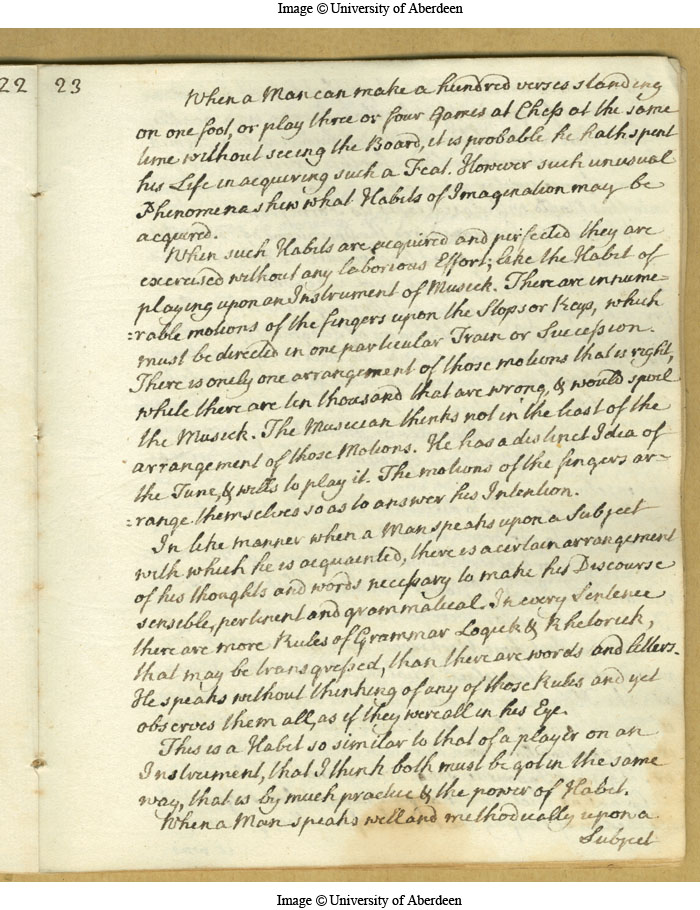 Image © University of Aberdeen
22 23
When a Man can make a hundred verses standing
on one foot, or play three or four Games at Chess at the same
time without seeing the Board, it is probable he hath spent
his Life in acquiring such a Feat. However such unusual
Phenomena shew what Habits of Imagination may be
acquired.
When such Habits are acquired and perfected they are
exercised without any laborious Effort; like the Habit of
playing upon an Instrument of Musick. There are innume=
=rable motions of the fingers upon the Stops or Keys, which
must be directed in one particular Train or Succession.
There is onely one arrangement of those motions that is right,
while there are ten thousand that are wrong, & would spoil
the Musick. The Musician thinks not in the least of the
arrangement of those Motions. He has a distinct Idea of
the Tune, & wills to play it. The motions of the fingers ar=
=range themselves so as to answer his Intention.
In like manner when a Man speaks upon a Subject
with which he is acquainted, there is a certain arrangement
of his thoughts and words necessary to make his Discourse
sensible, pertinent and grammatical. In every Sentence
there are more Rules of Grammar Logick & Rhetorick,
that may be transgressed, than there are words and letters.
He speaks without thinking of any of those Rules and yet
observes them all, as if they were all in his Eye.
This is a Habit so similar to that of a player on an
Instrument, that I think both must be got in the same
way, that is by much practice & the power of Habit.
When a Man speaks well and methodically upon a
Subject
Image © University of Aberdeen